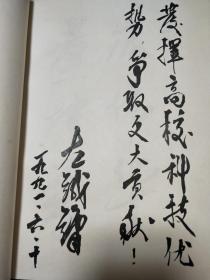 發揮高校科技优
势，争取更大贡献！
左鐵镛
一九九一·六·十